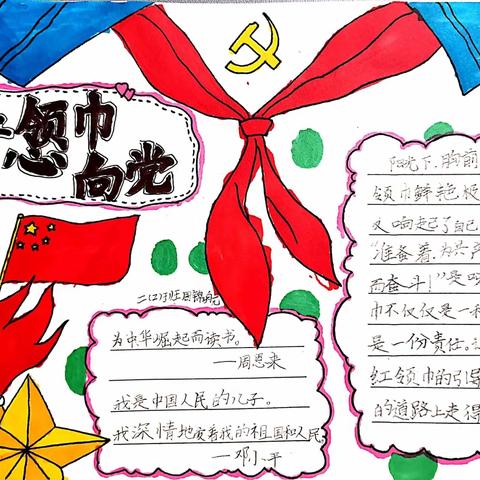 领巾
向党
二(2)班
为中华崛起而读书。
——周恩来
我是中国人民的儿子。
我深情地爱着我的祖国和人民
——邓小平
阳光下,胸前
领巾鲜艳极
又响起了自己
“准备着,为共产
而奋斗!”是呀
巾不仅仅是一
是一份责任。
红领巾的引导
的道路上走得